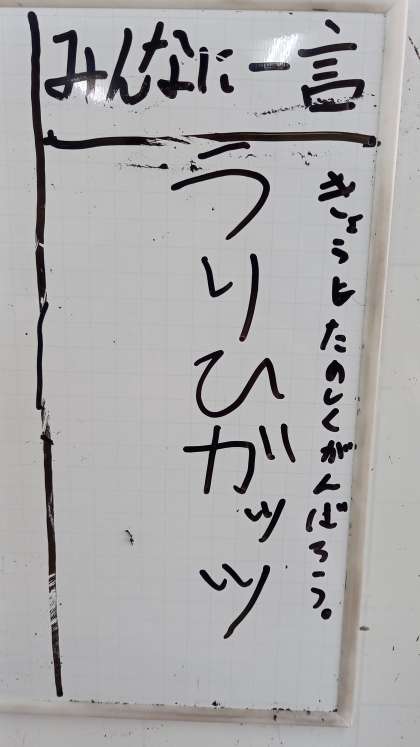 みんなに一言
きょうもたのしくがんばろう。
うりひガッツ